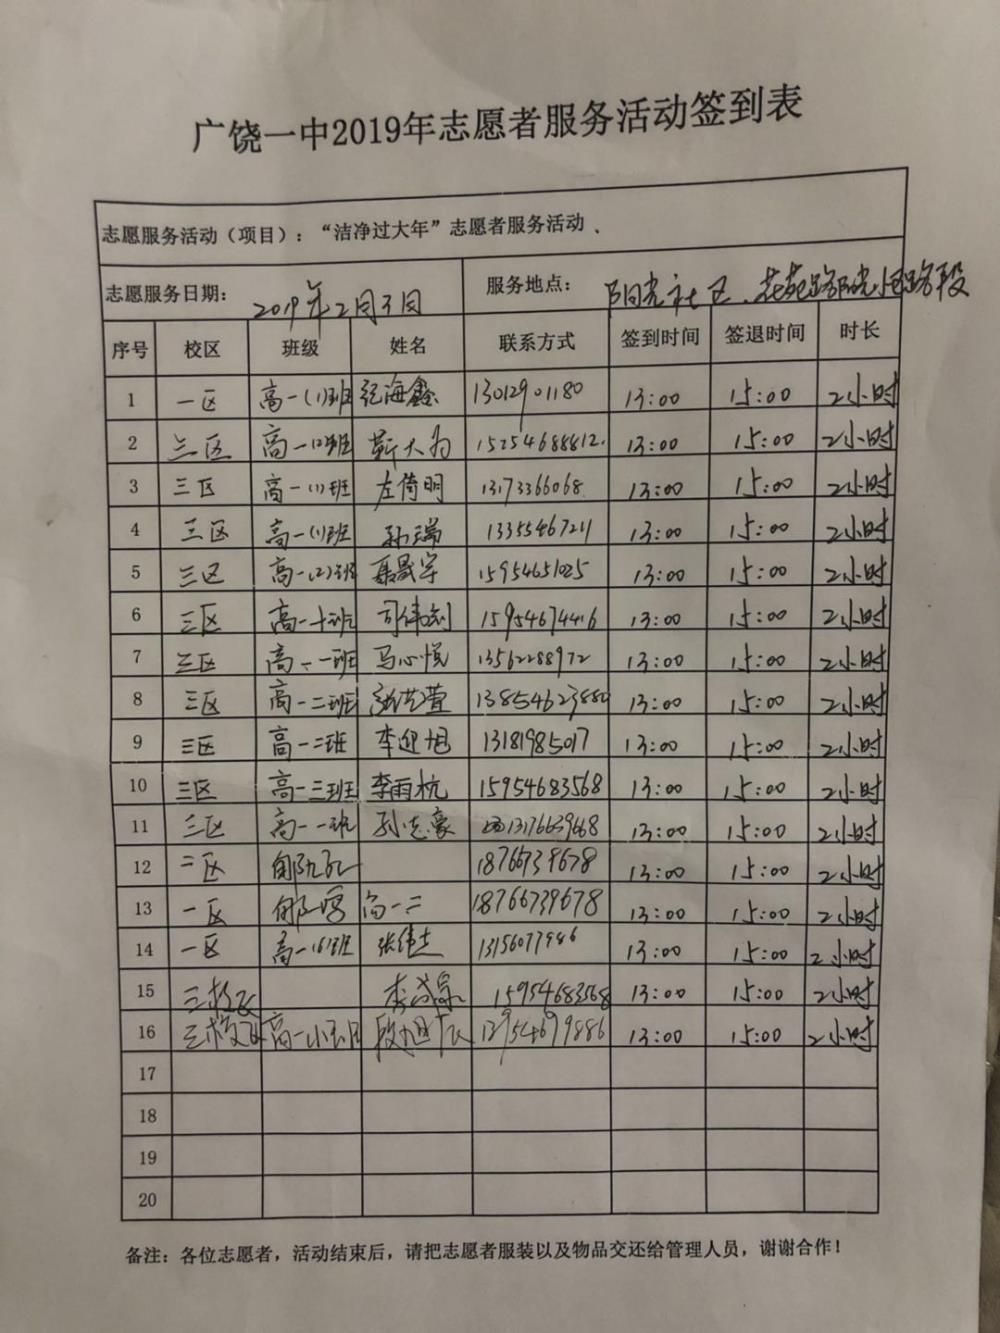 广饶一中2019年志愿者服务活动签到表
志愿服务活动（项目）：“洁净过大年”志愿者服务活动、
志愿服务日期： 2019年2月3日 服务地点： 阳光社区、花苑路阳光小区路段
序号 校区 班级 姓名 联系方式 签到时间 签退时间 时长
1 一区 高一(1)班 纪海鑫 13012901180 13:00 15:00 2小时
2 三区 高一 靳大为 15254688812. 13:00 15:00 2小时
3 三区 高一(1)班 左倚明 13173366068 13:00 15:00 2小时
4 三区 高一(1)班 孙瑞 13355467211 13:00 15:00 2小时
5 三区 高一(2)班 聂晟宇 15954651025 13:00 15:00 2小时
6 三区 高一十班 司伟剑 15954674416 13:00 15:00 2小时
7 三区 高一一班 马心悦 13562288972 13:00 15:00 2小时
8 三区 高一二班 13854623880 13:00 15:00 2小时
9 三区 高一二班 李迎旭 13181985017 13:00 15:00 2小时
10 三区 高一三班 李雨杭 15954683568 13:00 15:00 2小时
11 三区 高一一班 孙志豪 13:00 15:00 2小时
12 二区 18766739678 13:00 15:00 2小时
13 一区 高一二 18766739678 13:00 15:00 2小时
14 一区 高一(6)班 张伟杰 13:00 15:00 2小时
15 三校区 15954683568 13:00 15:00 2小时
16 三校区 高一 13954699886 13:00 15:00 2小时
17
18
19
20
备注：各位志愿者，活动结束后，请把志愿者服装以及物品交还给管理人员，谢谢合作！